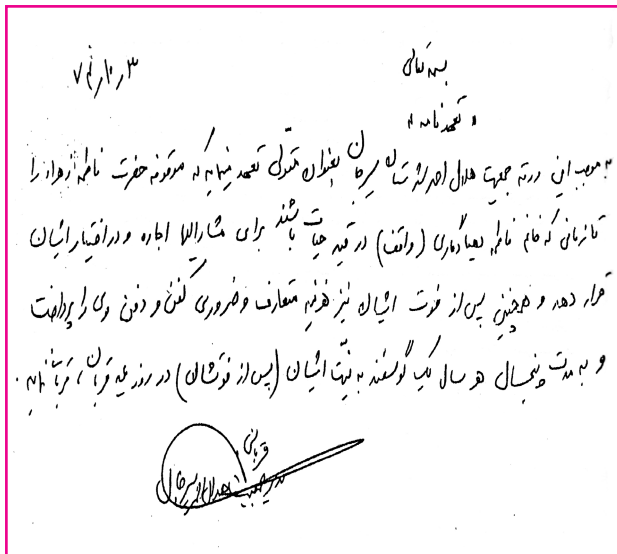 بسمه تعالی
۷۴/۱۰/۳
« تعهدنامه »
به موجب این ورقه جمعیت هلال احمر شهرستان سیرجان بعنوان متولی تعهد مینماید که موقوفه حضرت فاطمه زهرا را
تا زمانی که خانم فاطمه (واقف) در قید حیات باشند برای مشارالیها اجاره و در اختیار ایشان
قرار دهد و همچنین پس از فوت ایشان نیز هزینه متعارف و ضروری کفن و دفن وی را پرداخت
و به مدت پنجسال هر سال یک گوسفند به نیت ایشان (پس از فوتشان) در روز عید قربان، قربانی نماید.
قربانی
مدیر جمعیت هلال احمر سیرجان